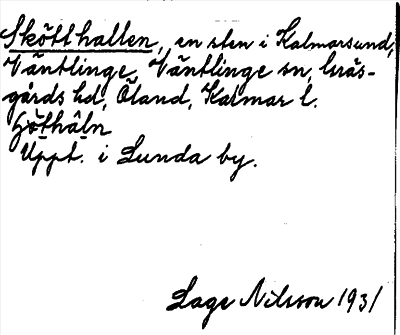 Skötthallen, en sten i Kalmarsund,
Väntlinge, Väntlinge sn, Gräs-
gårds hd, Öland, Kalmar l.
ʃöthâln
Uppt. i Lunda by.
Lage Nilsson 1931